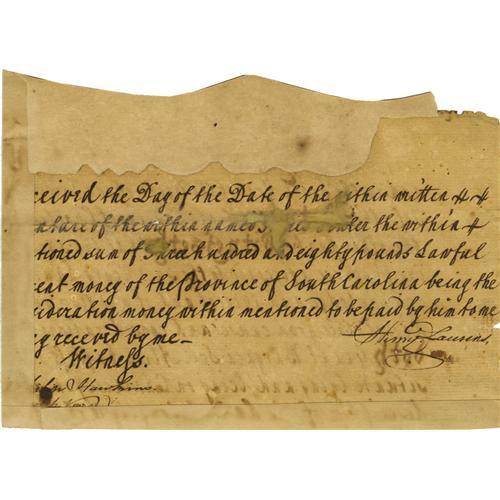 ceived the Day of the Date of the within written & &
nature of the within named the within &
tioned sum of Three hundred and eighty pounds Lawful
rent money of the Province of South Carolina being the
sideration money within mentioned to be paid by him to me
ng receved by me —
Henry Laurens.
Witness.
Hawkins